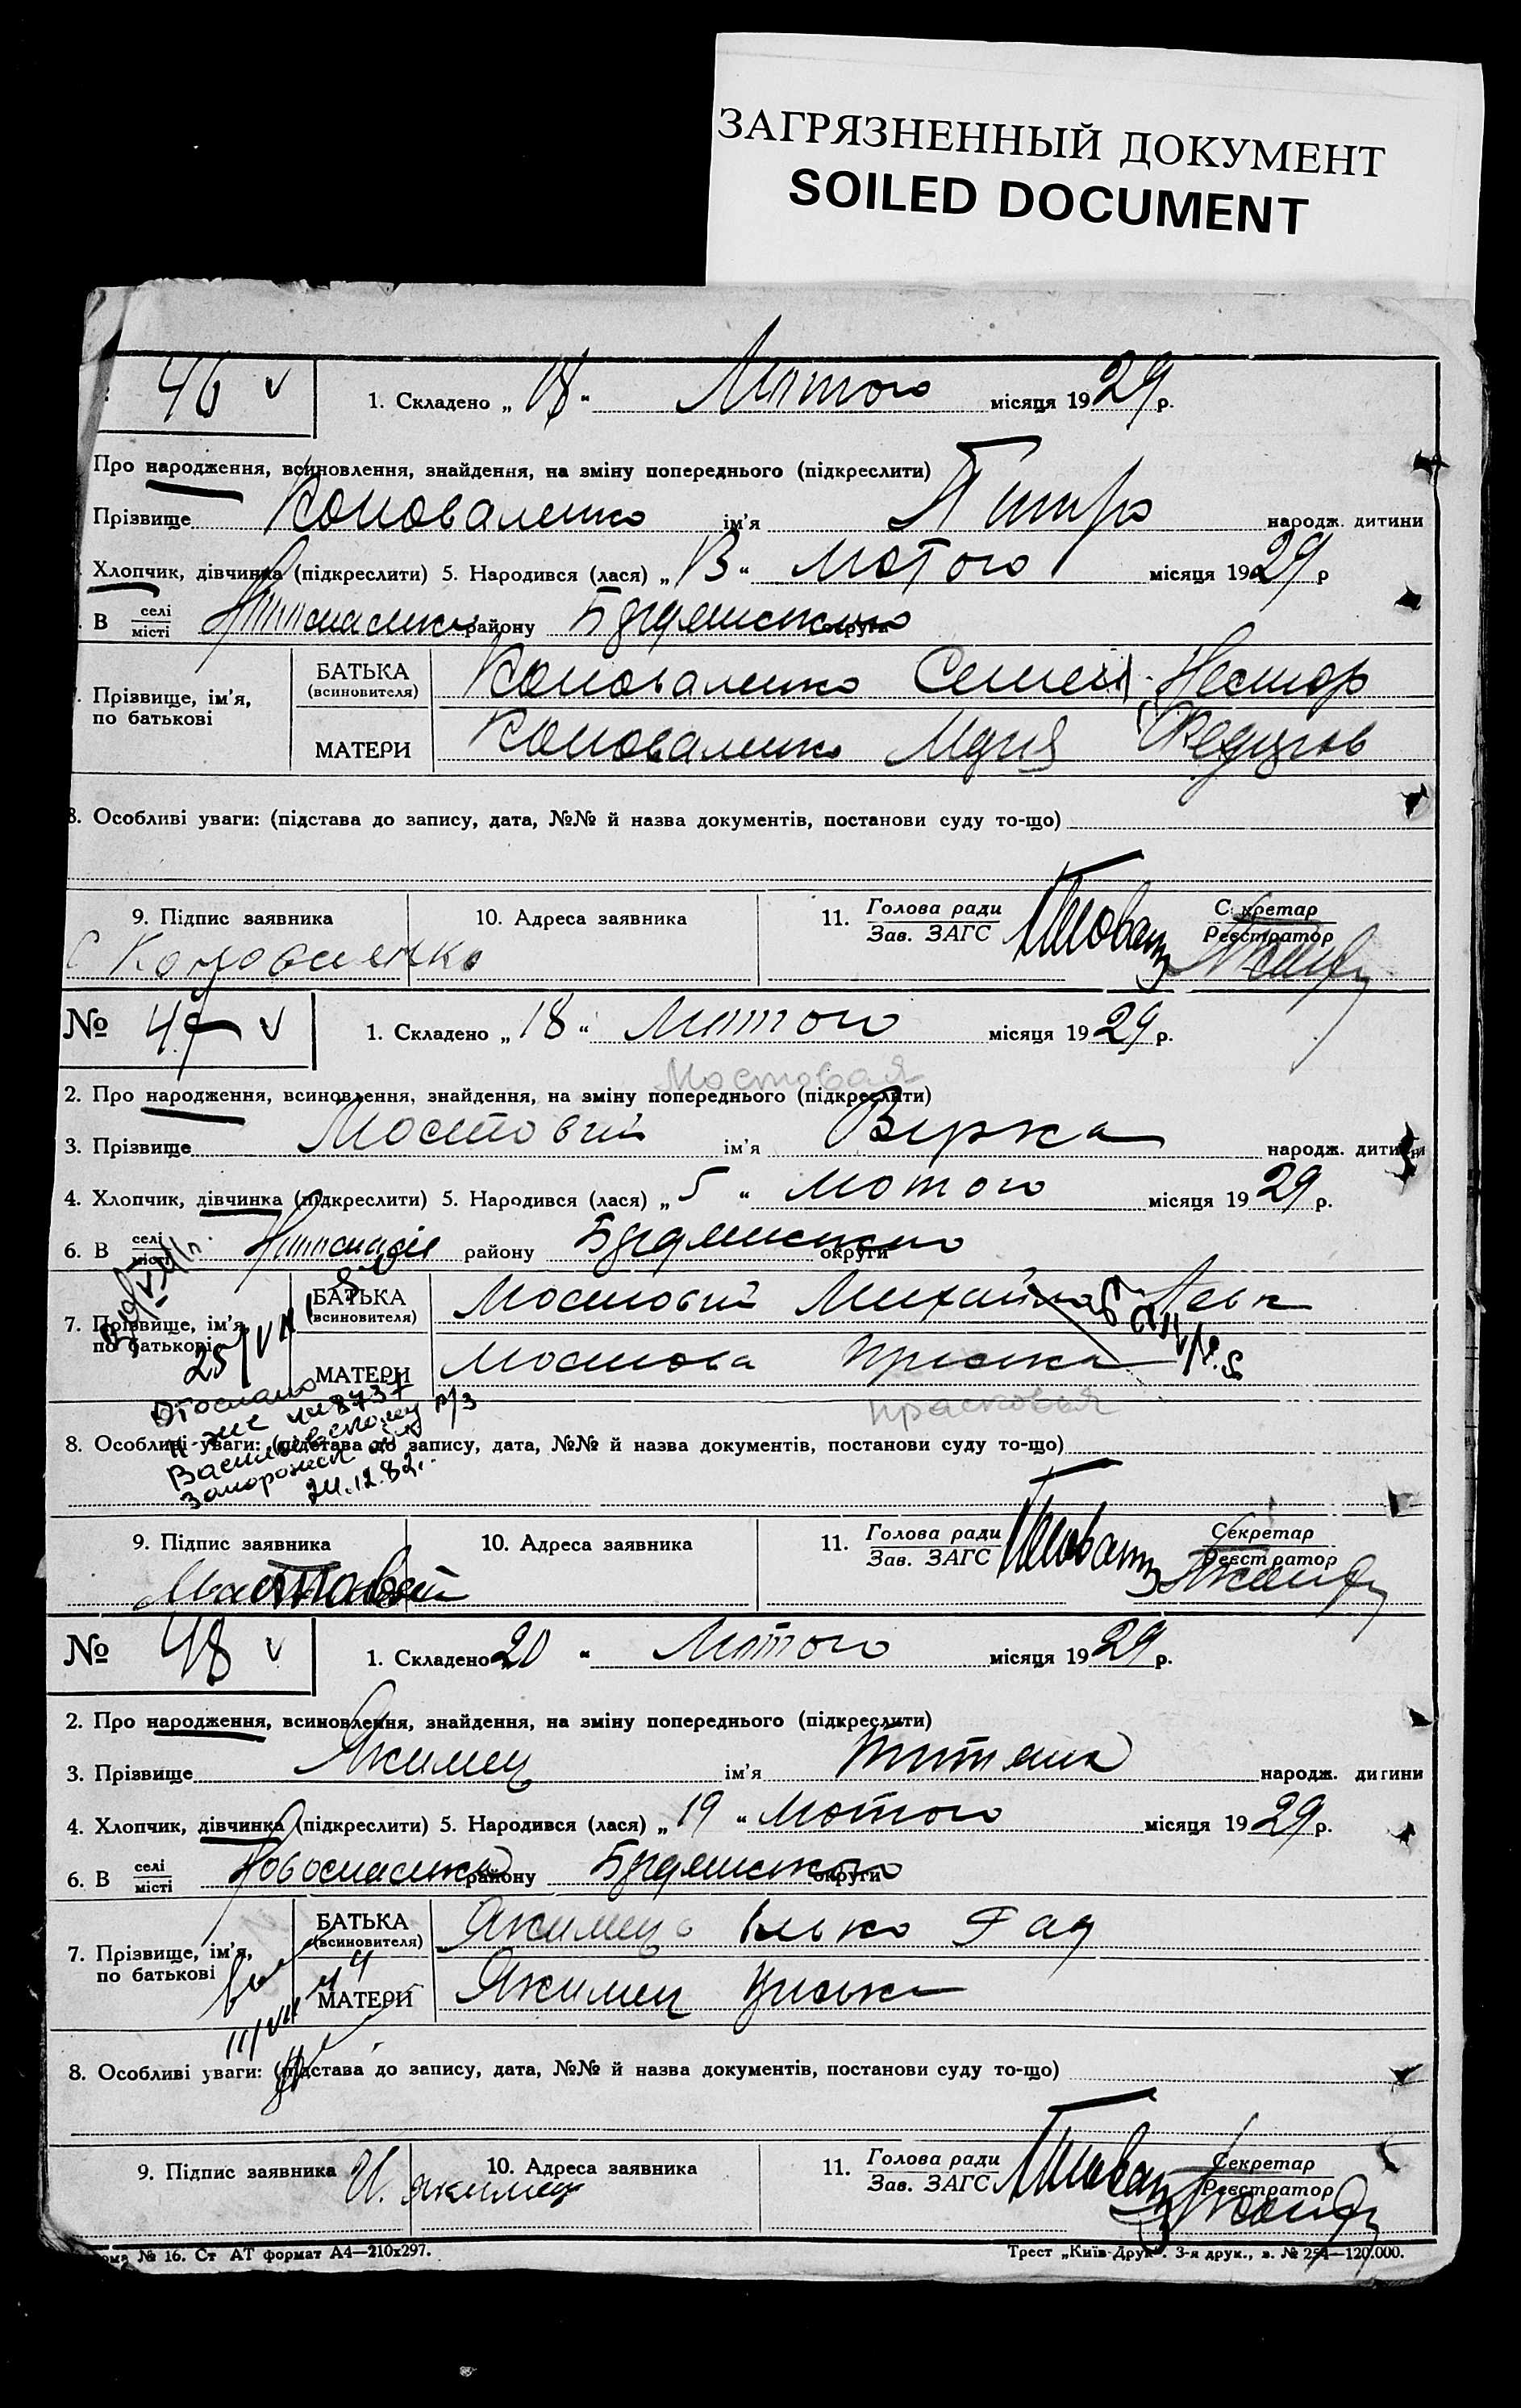 ЗАГРЯЗНЕННЫЙ ДОКУМЕНТ
SOILED DOCUMENT
46 v 1. Складено „ 18 “ Лютого місяця 1929 р.
Про народження, всиновлення, знайдення, на зміну попереднього (підкреслити)
Прізвище Коноваленко ім'я Питро народж. дитини
Хлопчик, дівчинка (підкреслити) 5. Народився (лася) „ 13 “ Лютого місяця 1929 р
В селі місті району Бердянського округи
Прізвище, ім'я, по батькові
БАТЬКА (всиновителя) Коноваленко Семен Нестор
МАТЕРИ Коноваленко Марія
8. Особливі уваги: (підстава до запису, дата, №№ й назва документів, постанови суду то-що)
9. Підпис заявника 10. Адреса заявника 11. Голова ради Зав. ЗАГС Секретар Реєстратор
С Коноваленко
№ 47 v 1. Складено „ 18 “ Лютого місяця 1929 р.
Мостовая
2. Про народження, всиновлення, знайдення, на зміну попереднього (підкреслити)
3. Прізвище Мостовий ім'я Вирка народж. дитини
4. Хлопчик, дівчинка (підкреслити) 5. Народився (лася) „ 5 “ Лютого місяця 1929 р.
6. В селі місті району Бердянського округи
7. Прізвище, ім'я, по батькові
БАТЬКА (всиновителя) Мостовий Михайло
МАТЕРИ Мостова Приська
25/VII
Прасковья
Отослано
8737
Васильевскому р/з
Запорожск
24.12.82г.
8. Особливі уваги: (підстава до запису, дата, №№ й назва документів, постанови суду то-що)
9. Підпис заявника 10. Адреса заявника 11. Голова ради Зав. ЗАГС Секретар Реєстратор
Мастовой
№ 48 v 1. Складено 20 “ Лютого місяця 1929 р.
2. Про народження, всиновлення, знайдення, на зміну попереднього (підкреслити)
3. Прізвище Якимец ім'я Титяна народж. дитини
4. Хлопчик, дівчинка (підкреслити) 5. Народився (лася) „ 19 “ Лютого місяця 1929 р.
6. В селі місті Новоспаське району Бердянського округи
7. Прізвище, ім'я, по батькові
БАТЬКА (всиновителя) Якимец Ілько
МАТЕРИ Якимец
8. Особливі уваги: (підстава до запису, дата, №№ й назва документів, постанови суду то-що)
9. Підпис заявника 10. Адреса заявника 11. Голова ради Зав. ЗАГС Секретар Реєстратор
И. Якимец
№ 16. Ст АТ формат А4—210х297. Трест „Київ-Друк“. 3-я друк., з. № 254—120.000.